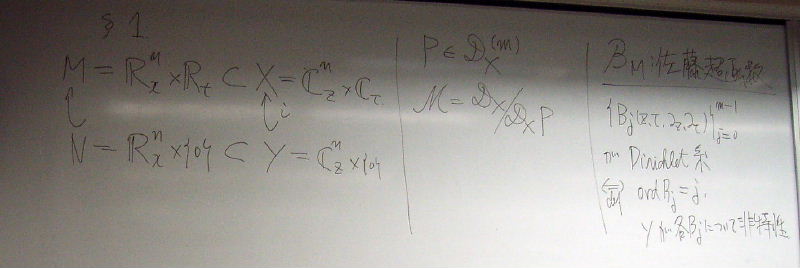 §1.
M = ℝ_x^n × ℝ_t ⊂ X = ℂ_z^n × ℂ_τ
↪ ↪ i
N = ℝ_x^n × {0} ⊂ Y = ℂ_z^n × {0}
P ∈ 𝒟_X^(m)
ℳ = 𝒟_X/𝒟_X P
ℬ_M:佐藤超函数
{B_j(z, τ, ∂_z, ∂_τ)}_{j=0}^{m-1}
が Dirichlet 系
⟺ def ord B_j = j.
Yが各B_jについて非特性